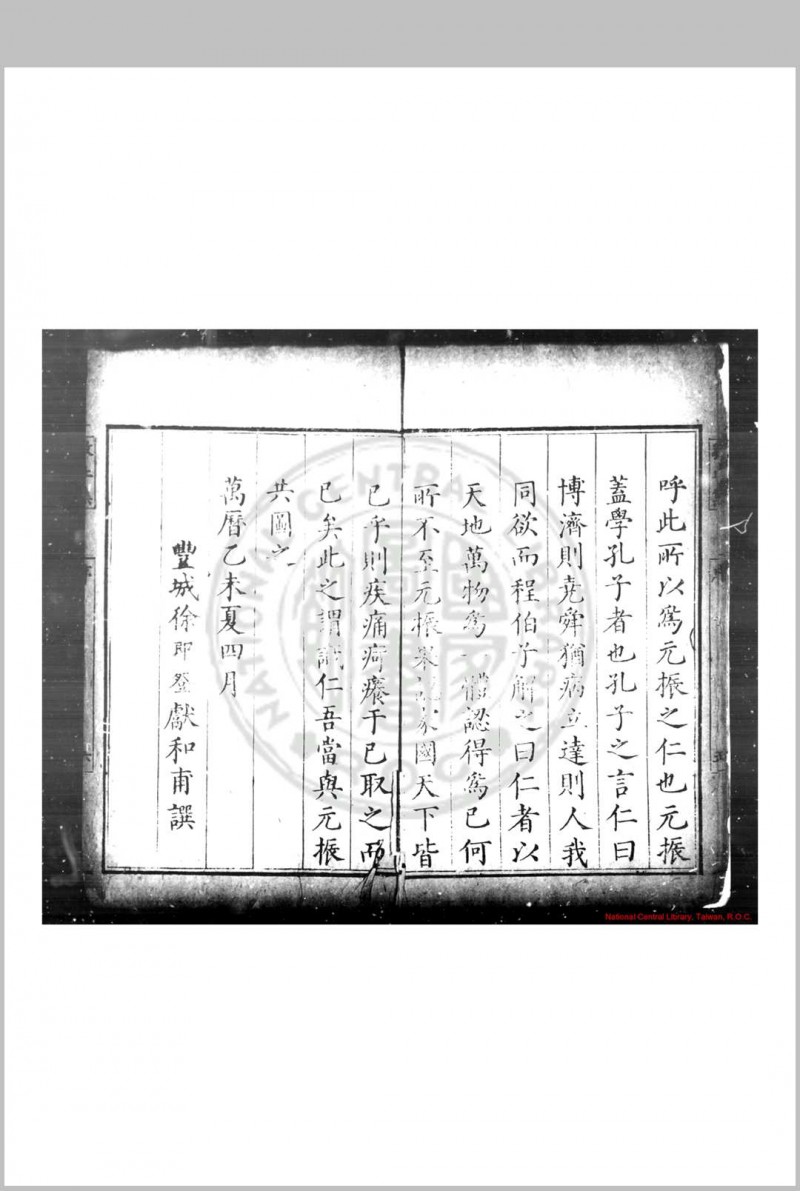 呼此所以爲元振之仁也元振
蓋學孔子者也孔子之言仁曰
博濟則堯舜猶病立達則人我
同欲而程伯子解之曰仁者以
天地萬物爲一體認得爲已何
所不至元振舉家國天下皆
已乎則疾痛疴癢于已取之而
已矣此之謂識仁吾當與元振
共圖之
萬曆乙未夏四月
豐城徐即登獻和甫譔
NATIONAL CENTRAL LIBRARY
National Central Library, Taiwan, R.O.C.